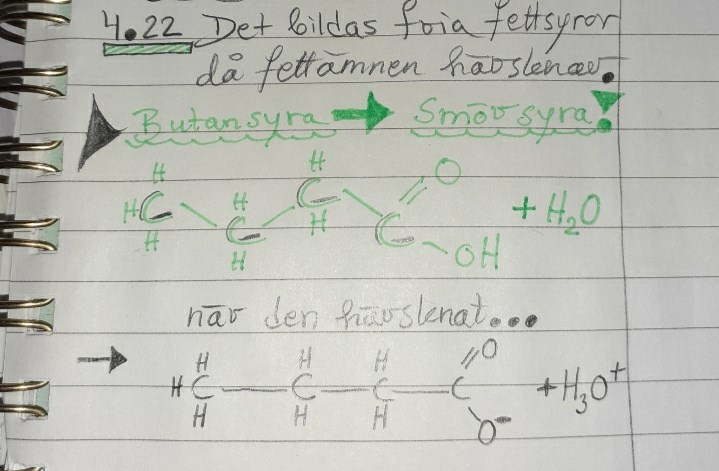 4.22 Det bildas fria fettsyror
då fettämnen härsknar.
Butansyra → Smörsyra!
H H
HC C O
H H H
C C + H₂O
H OH
när den härsknat...
→ H H H O
HC — C — C — C + H₃O⁺
H H H O⁻